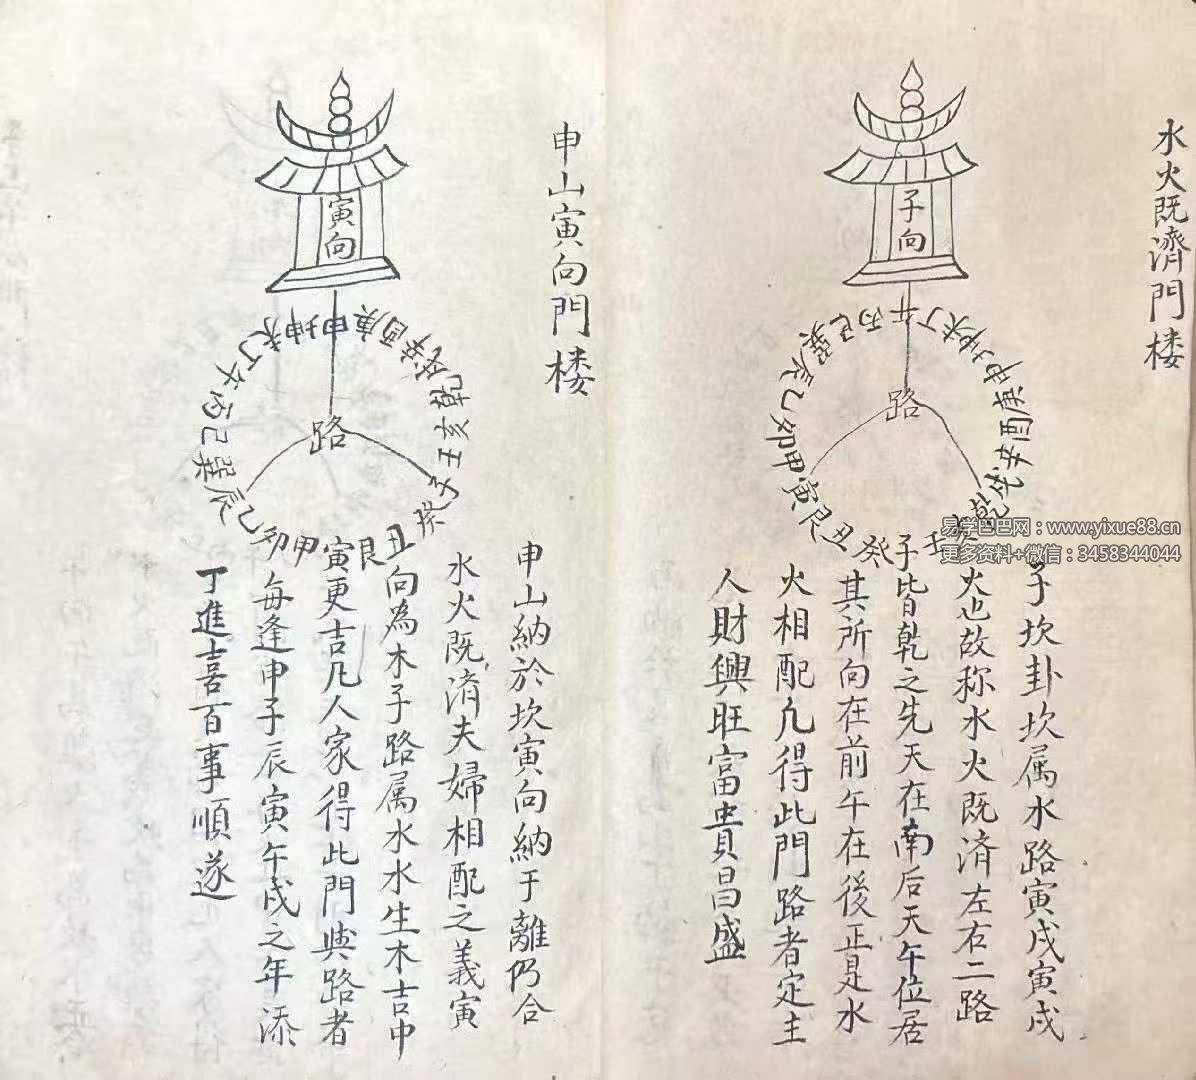 水火既濟門楼
子向
路
午丁未坤申庚酉辛戌乾亥壬子癸丑艮寅甲卯乙辰巽巳丙
子坎卦坎属水路寅戌寅戌
火也故称水火既済左右二路
皆乾之先天在南后天午位居
其所向在前午在後正是水
火相配凢得此門路者定主
人財興旺富貴昌盛
申山寅向門楼
寅向
路
申庚酉辛戌乾亥壬子癸丑艮寅甲卯乙辰巽巳丙午丁未坤
申山納於坎寅向納于離仍合
水火既済夫婦相配之義寅
向為木子路属水水生木吉中
更吉凢人家得此門與路者
每逢申子辰寅午戌之年添
丁進喜百事順遂
易学巴巴网：www.yixue88.cn
更多资料+微信：3458344044